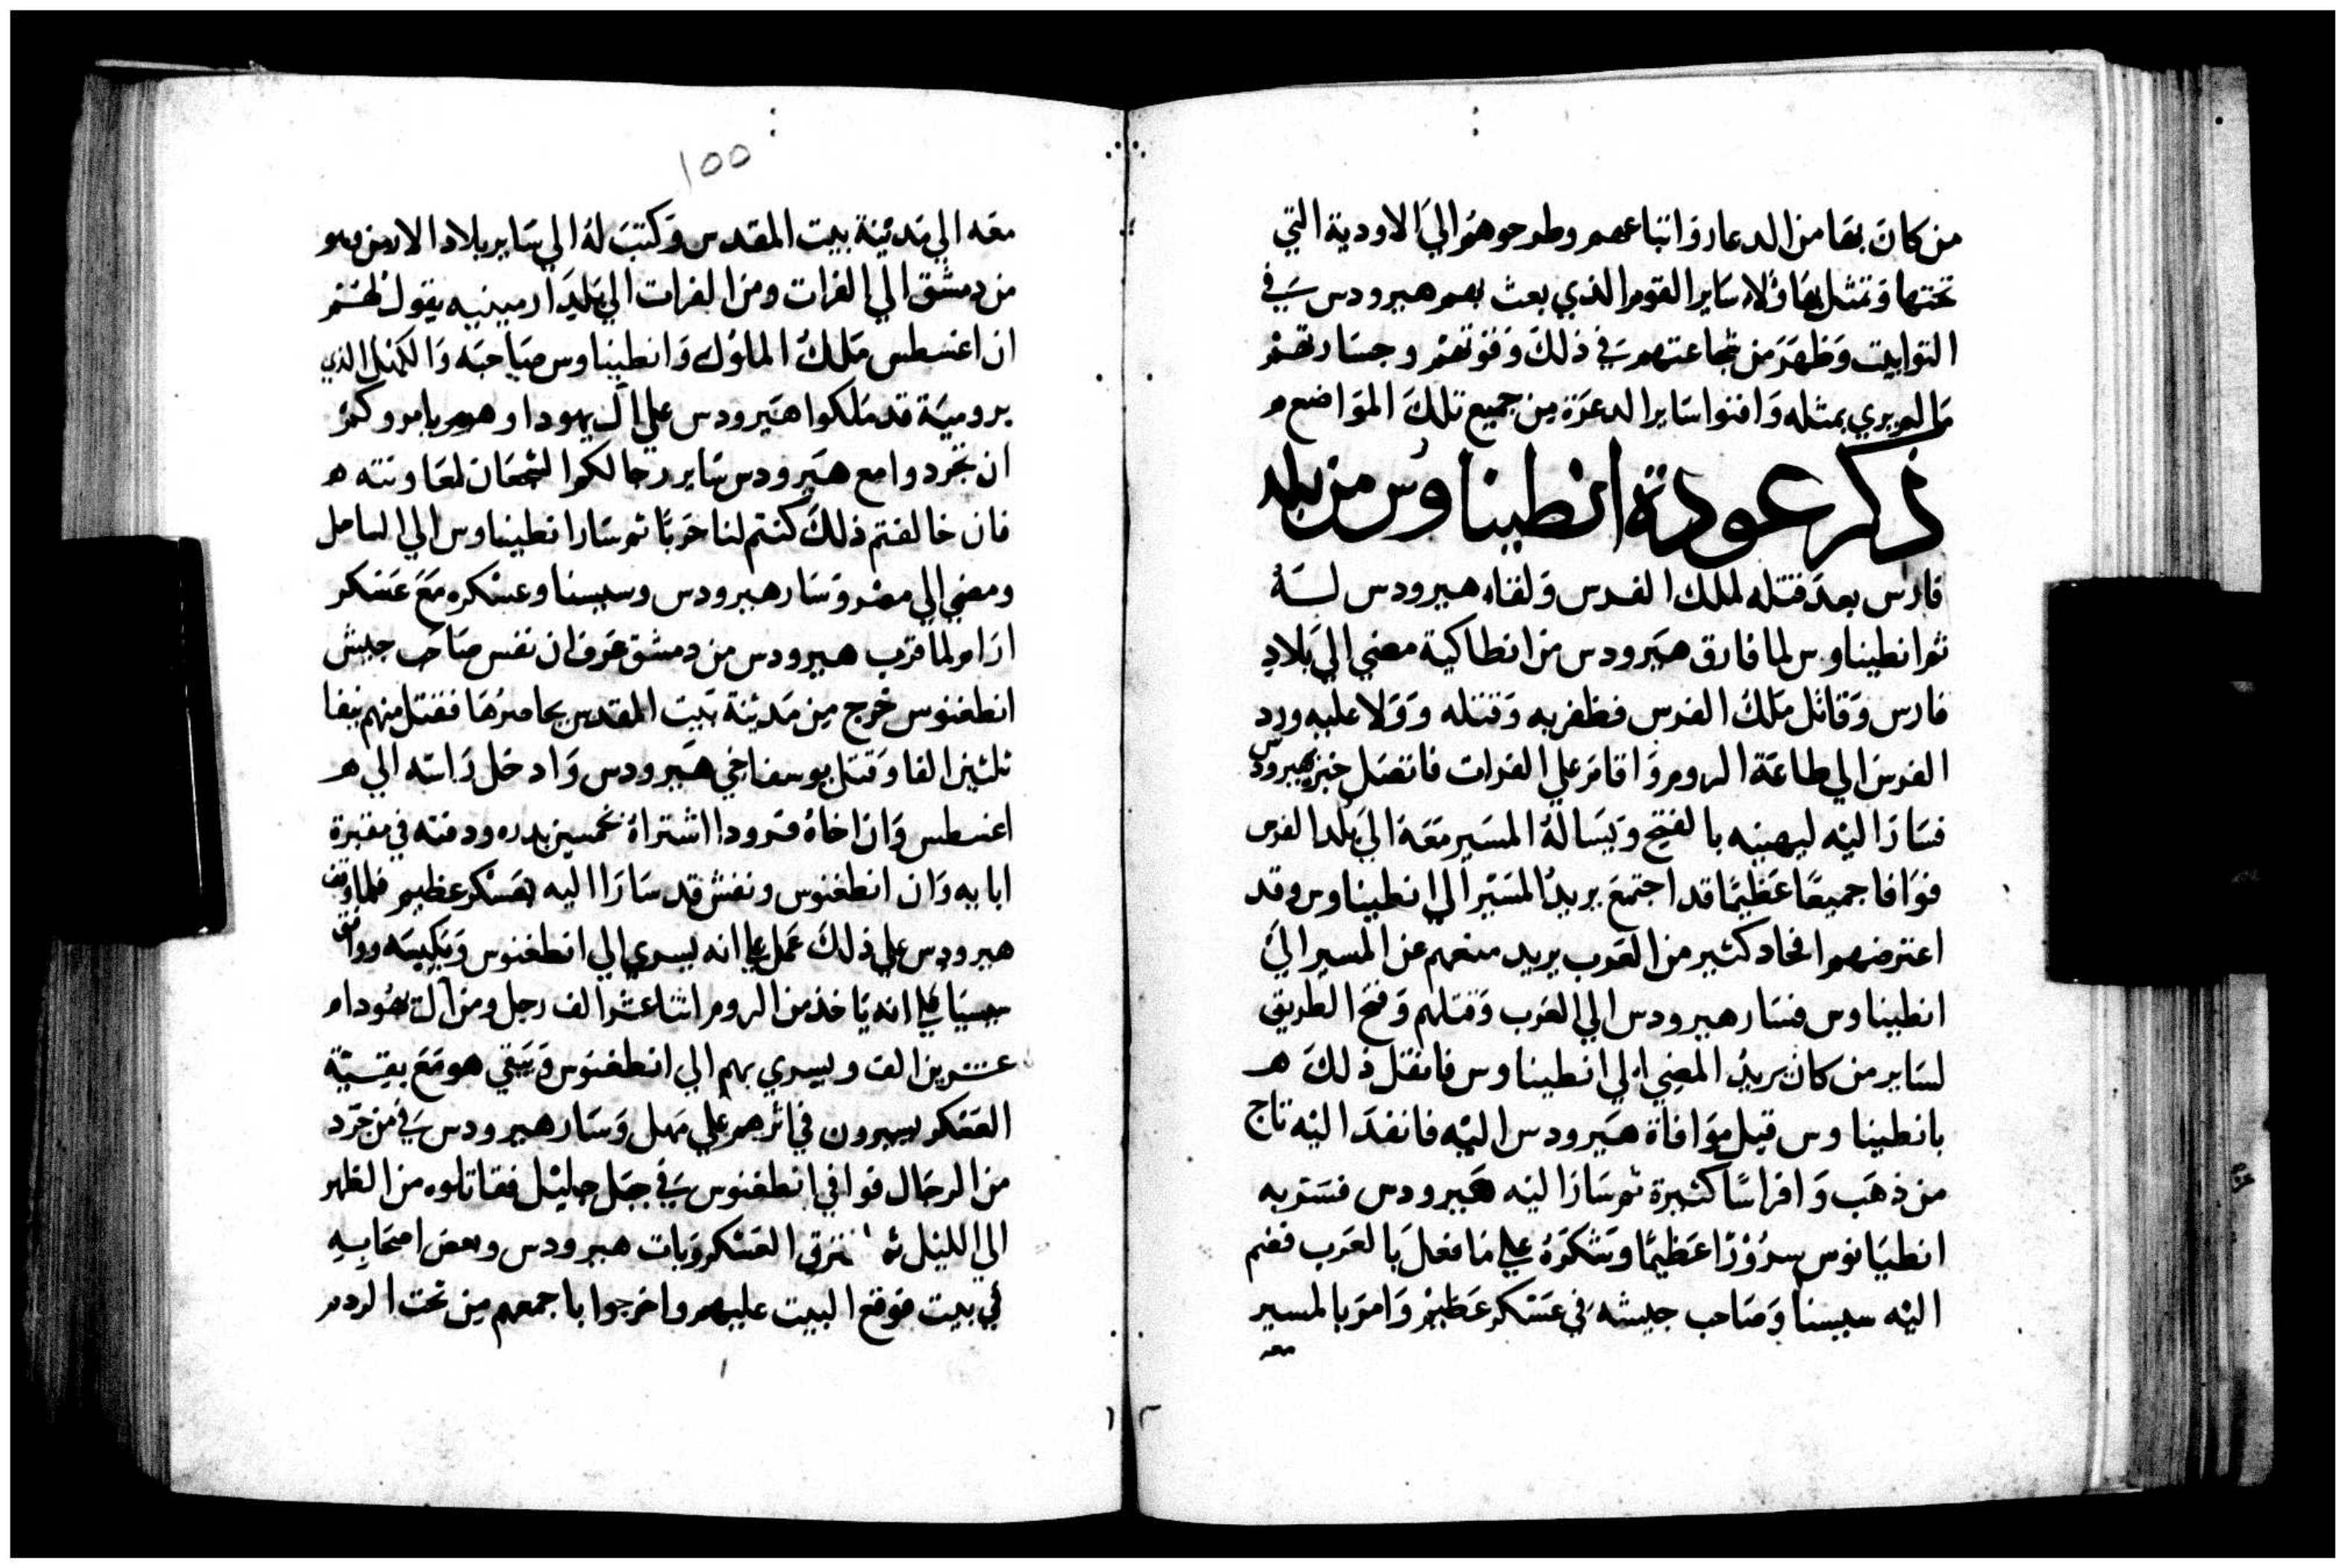 من كان بقا من الدعار واتباعهم وطرحوهم الي الاودية التي
تحتها وتمثل بهاولاء ساير القوم الذي بعث بهم هيرودس في
التوابيت وظهر من شجاعتهم في ذلك وقوتهم وجسارتهم
ما لم يري بمثله وافنوا ساير الدعرة من جميع تلك المواضع ه
ذكر عودة انطيناوس من بلد
فارس بعد قتله لملك الفرس ولقاء هيرودس لـه
ثم انطيناوس لما فارق هيرودس من انطاكية مضي الي بلاد
فارس وقاتل ملك الفرس فظفر به وقتله وولا عليه ورد
الفرس الي طاعة الروم واقام علي الفرات فاتصل خبره بهيرودس
فسار اليه ليهنيه بالفتح ويساله المسير معه الي بلد الفرس
فوافا جميعا عظيما قد اجتمع يريد المسير الي انطيناوس وقد
اعترضهم افخاد كثير من العرب يريد منعهم عن المسير الي
انطيناوس فسار هيرودس الي العرب وقتلهم وفتح الطريق
لساير من كان يريد المضي الي انطيناوس فاتصل ذلك ه
بانطيناوس قبل موافاة هيرودس اليه فانفد اليه تاج
من ذهب وافراسا كثيرة ثم سار اليه هيرودس فسر به
انطيانوس سرورا عظيما وشكره علي ما فعل بالعرب فضم
اليه سيسنا وصاحب جيشه في عسكر عظيم وامر بالمسير
معه
١٥٥
معه الي مدينة بيت المقدس وكتب له الي ساير بلاد الارمن وهو
من دمشق الي الفرات ومن الفرات الي بلد ارمينيه يقول لهم
ان اغسطس ملك الملوك وانطيناوس صاحبه والكهنل الذي
برومية قد ملكوا هيرودس علي ال يهودا وهم يامروكم
ان تجردوا مع هيرودس ساير رجالكوا الشجعان لمعاونته ه
فان خالفتم ذلك كنتم لنا حربا ثم سار انطيناوس الي الساحل
ومضي الي مصر وسار هيرودس وسيسنا وعسكره مع عسكر
ارام ولما قرب هيرودس من دمشق عرف ان نفس صاحب جيش
انطغنوس خرج من مدينة بيت المقدس بحاصرها فقتل منهم نيفا
ثلثين الفا وقتل يوسف اخي هيرودس وادخل راسه الي ه
اغسطس وان اخاه فرودا اشتراه بخمسين بدره ودفنه في مقبرة
ابايه وان انطغنوس ونفس قد سارا اليه بعسكر عظيم فلما وقف
هيرودس علي ذلك عمل علي انه يسري الي انطغنوس ويكبسه ووافق
سيسنا علي انه ياخذ من الروم اثنا عشر الف رجل ومن ال يهودا ه
عشرين الف ويسري بهم الي انطغنوس ويبقي هو مع بقية
العسكر يسيرون في اثرهم علي مهل وسار هيرودس في من جرد
من الرجال فوافي انطغنوس في جبل جليل فقاتلوه من الظهر
الي الليل ثم تفرق العسكر وبات هيرودس وبعض اصحابه
في بيت فوقع البيت عليهم واخرجوا باجمعهم من تحت الردم